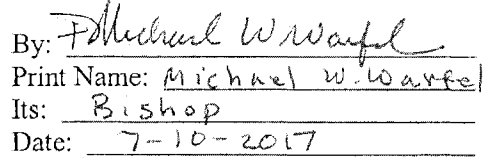 By: +Michael W Warfel
Print Name: Michael W. Warfel
Its: Bishop
Date: 7-10-2017